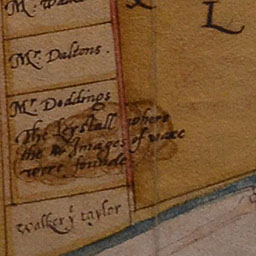 Mr. Wa
L
Mr. Daltons.
Mr. Doddings
The Kystall where
the Images of waxe
were founde
Walker ye taylor